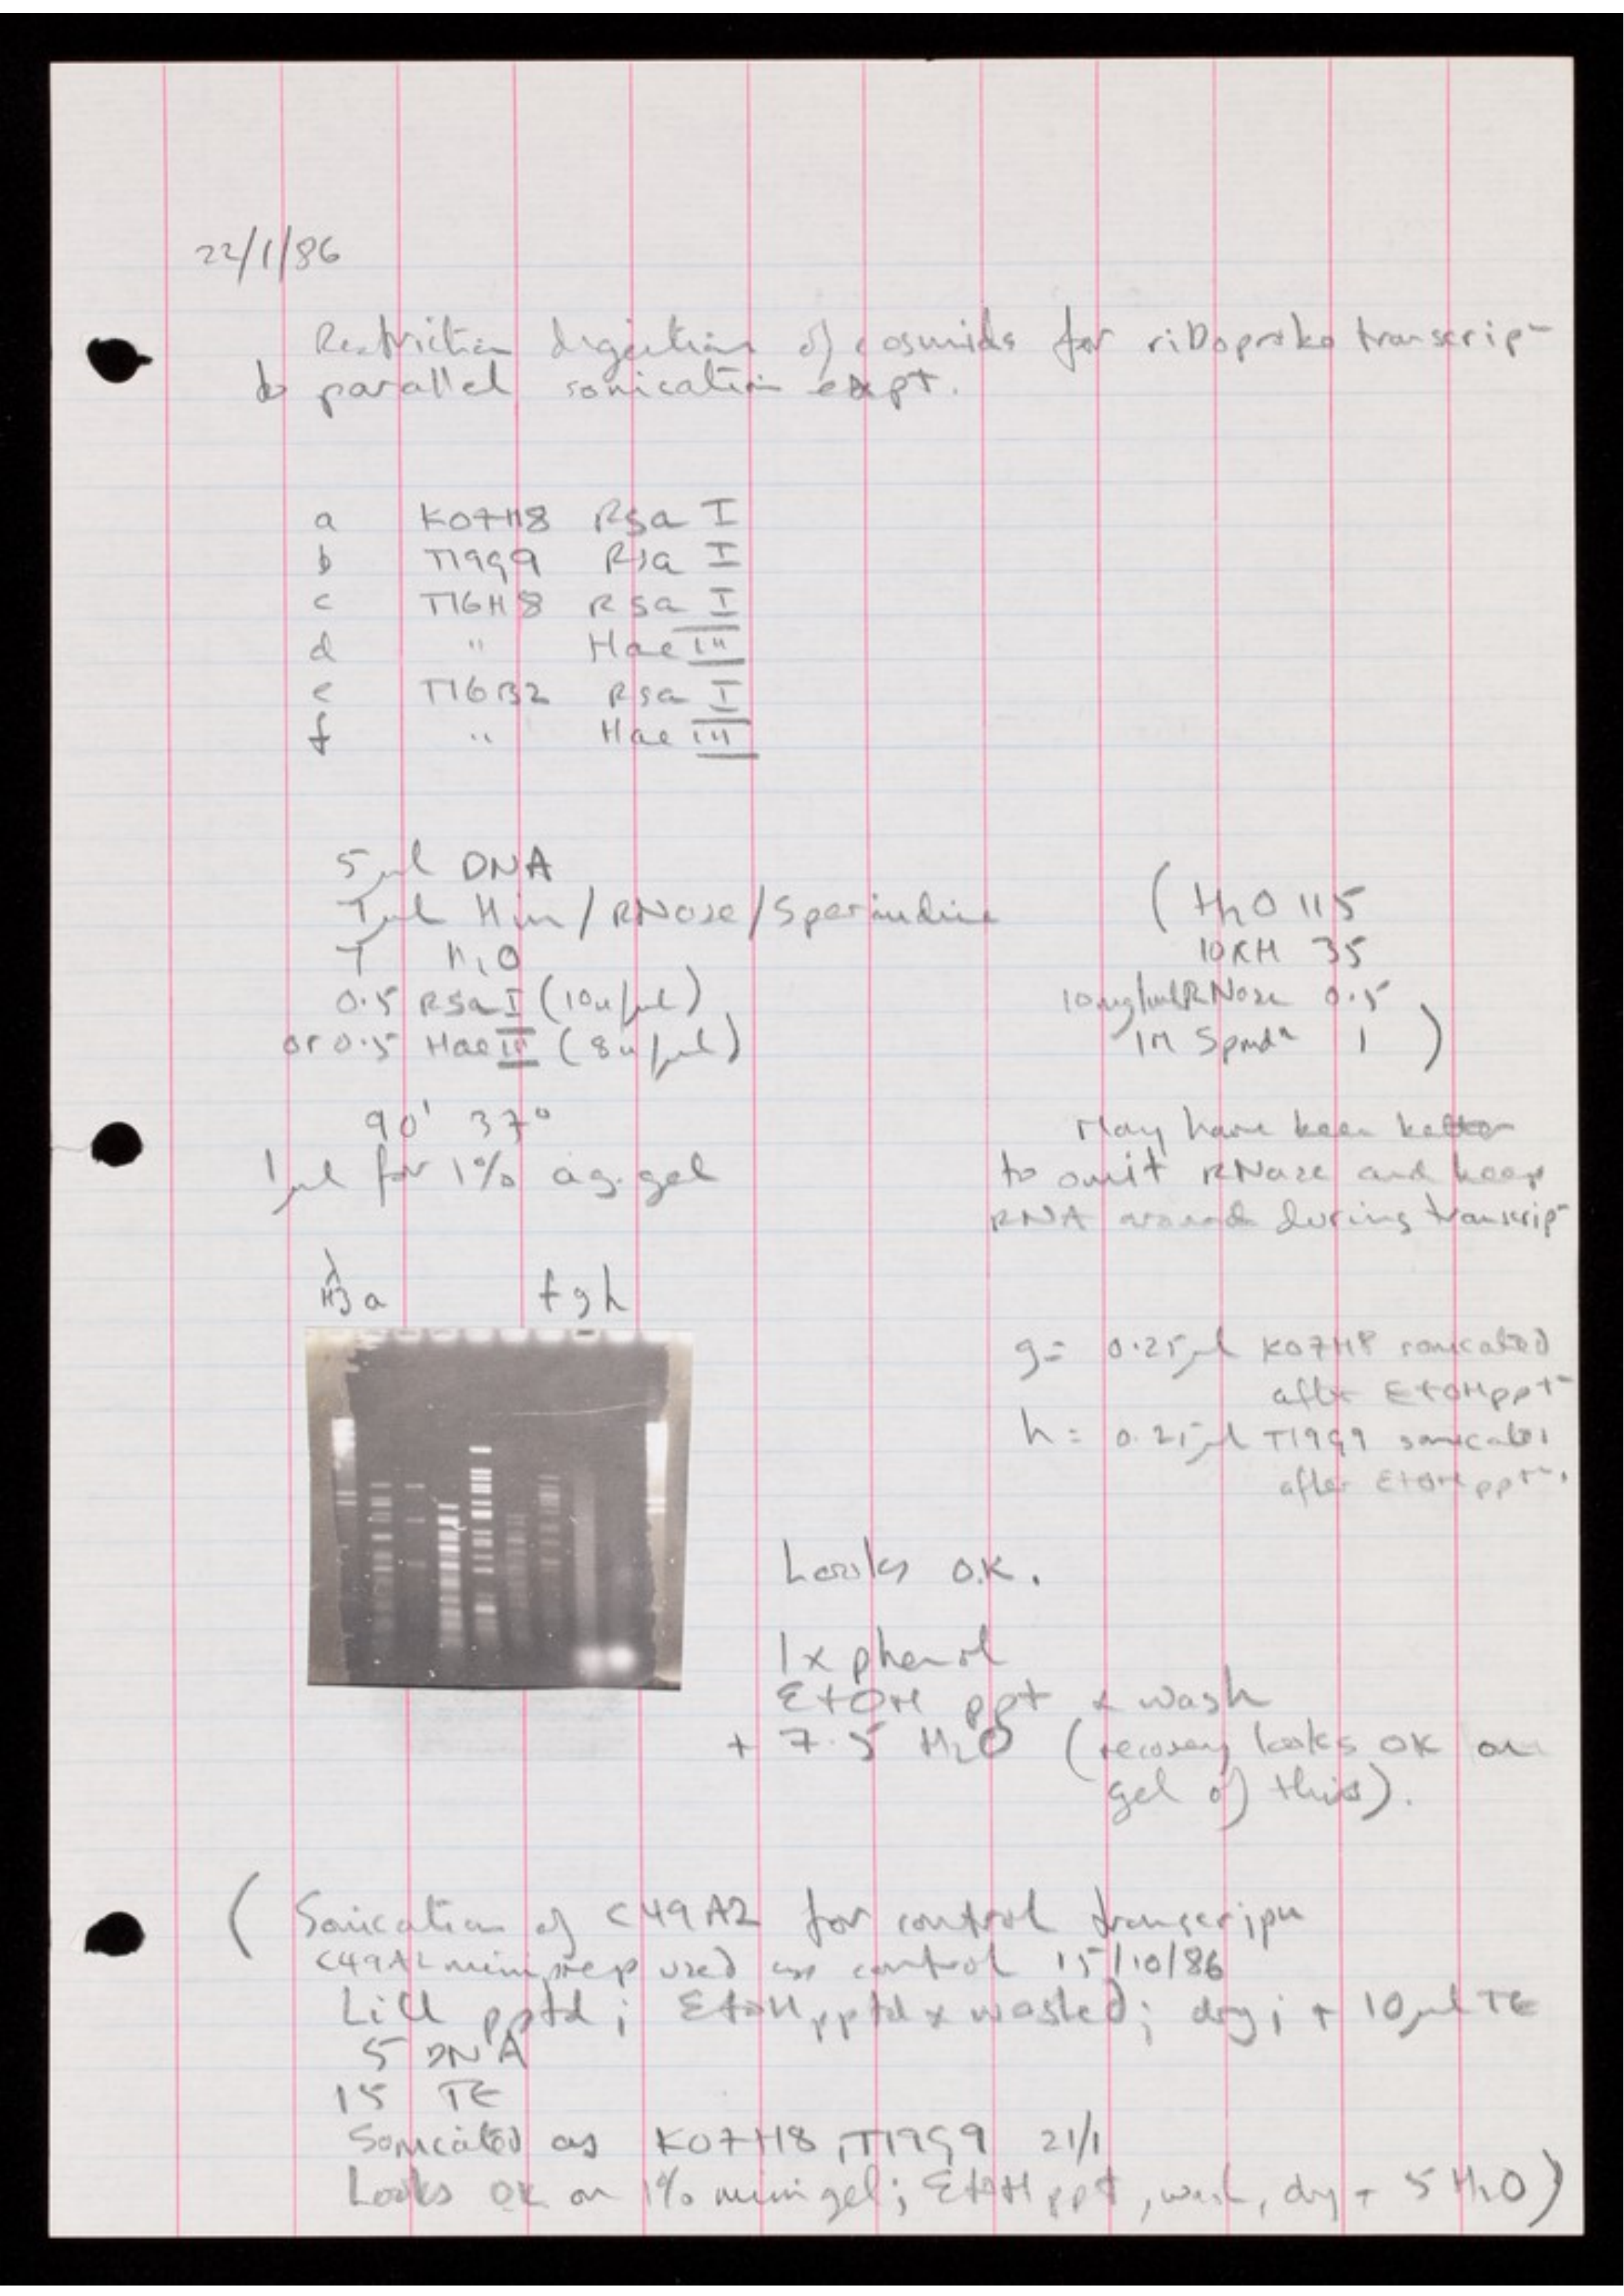 22/1/86
Restriction digestions of cosmids for riboprobe transcripn
to parallel sonication expt.
a K07H8 Rsa I
b T19G9 Rsa I
c T16H8 Rsa I
d " Hae III
e T16B2 Rsa I
f " Hae III
5 µl DNA
7 µl Hin / RNase / Spermidine
7 H2O
0.5 Rsa I (10u/µl)
or 0.5 Hae III (8u/µl)
( H2O 115
10xH 35
10mg/ml RNase 0.5
1M Spmdn 1 )
90' 37°
1 µl for 1% ag. gel
May have been better
to omit RNase and keep
RNA around during transcripn
λ
H3 a f g h
g = 0.25 µl K07H8 sonicated
after EtOH pptn
h = 0.25 µl T19G9 sonicated
after EtOH pptn.
Looks O.K.
1 x phenol
EtOH ppt & wash
+ 7.5 H2O (recovery looks OK on
gel of this).
( Sonication of C49A2 for control transcripn
C49A2 miniprep used as control 15/10/86
LiCl pptd; EtOH pptd & washed; dry; + 10 µl TE
5 DNA
15 TE
Sonicated as K07H8, T19G9 21/1
Looks OK on 1% mini gel; EtOH ppt, wash, dry + 5 H2O)